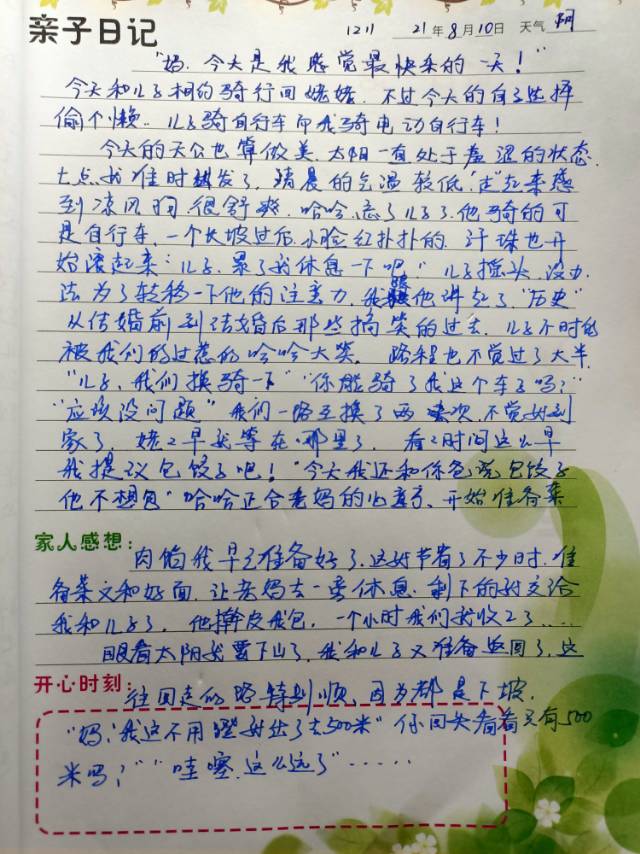 亲子日记 1211 21年8月10日 天气 阴
"妈，今天是我感觉最快乐的一天！"
今天和儿子相约骑行回姥姥，不过今天的自己选择
偷个懒，儿子骑自行车而我骑电动自行车！
今天的天公也算做美，太阳一直处于羞涩的状态，
七点我准时出发了，清晨的气温较低，"走"起来感
到凉风阵阵，很舒爽，哈哈，忘了儿子了，他骑的可
是自行车，一个长坡过后，小脸红扑扑的，汗珠也开
始滚起来："儿子，累了我休息一下吧"儿子摇头，没办
法为了转移一下他的注意力，我跟他讲起了"历史"
从结婚前到结婚后那些搞笑的过去，儿子不时的
被我们的过葱的哈哈大笑，路程也不觉过了大半，
"儿子，我们换骑一下""你能骑了我这个车子吗？"
"应该没问题"我们一路互换了两次，不觉好到
家了，姥姥早就等在那里了，看看时间这么早
我提议包饺子吧！"今天我还和你爸说包饺子
他不想包"哈哈正合老妈的心意了，开始准备菜
家人感想：
肉馅我早已准备好了，这好节省了不少时，准
备菜又和好面，让老妈去一旁休息，剩下的就交给
我和儿子了，他擀皮我包，一个小时我们就收工了....
眼看太阳就要下山了，我和儿子又准备返回了，这
开心时刻：
往回走的路特别顺，因为都是下坡，
"妈，我这不用蹬就出了去500米"你回头看看只有500
米吗？""哇塞，这么远了"......